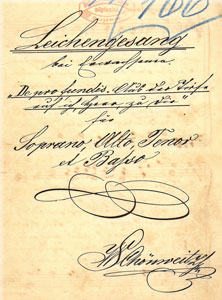 100
Leichengesang
bei Erwachsenen.
„De profundis. Aus der Tiefe
ruf ich Herr zu dir"
für
Soprano Alto, Tenor
et Basso